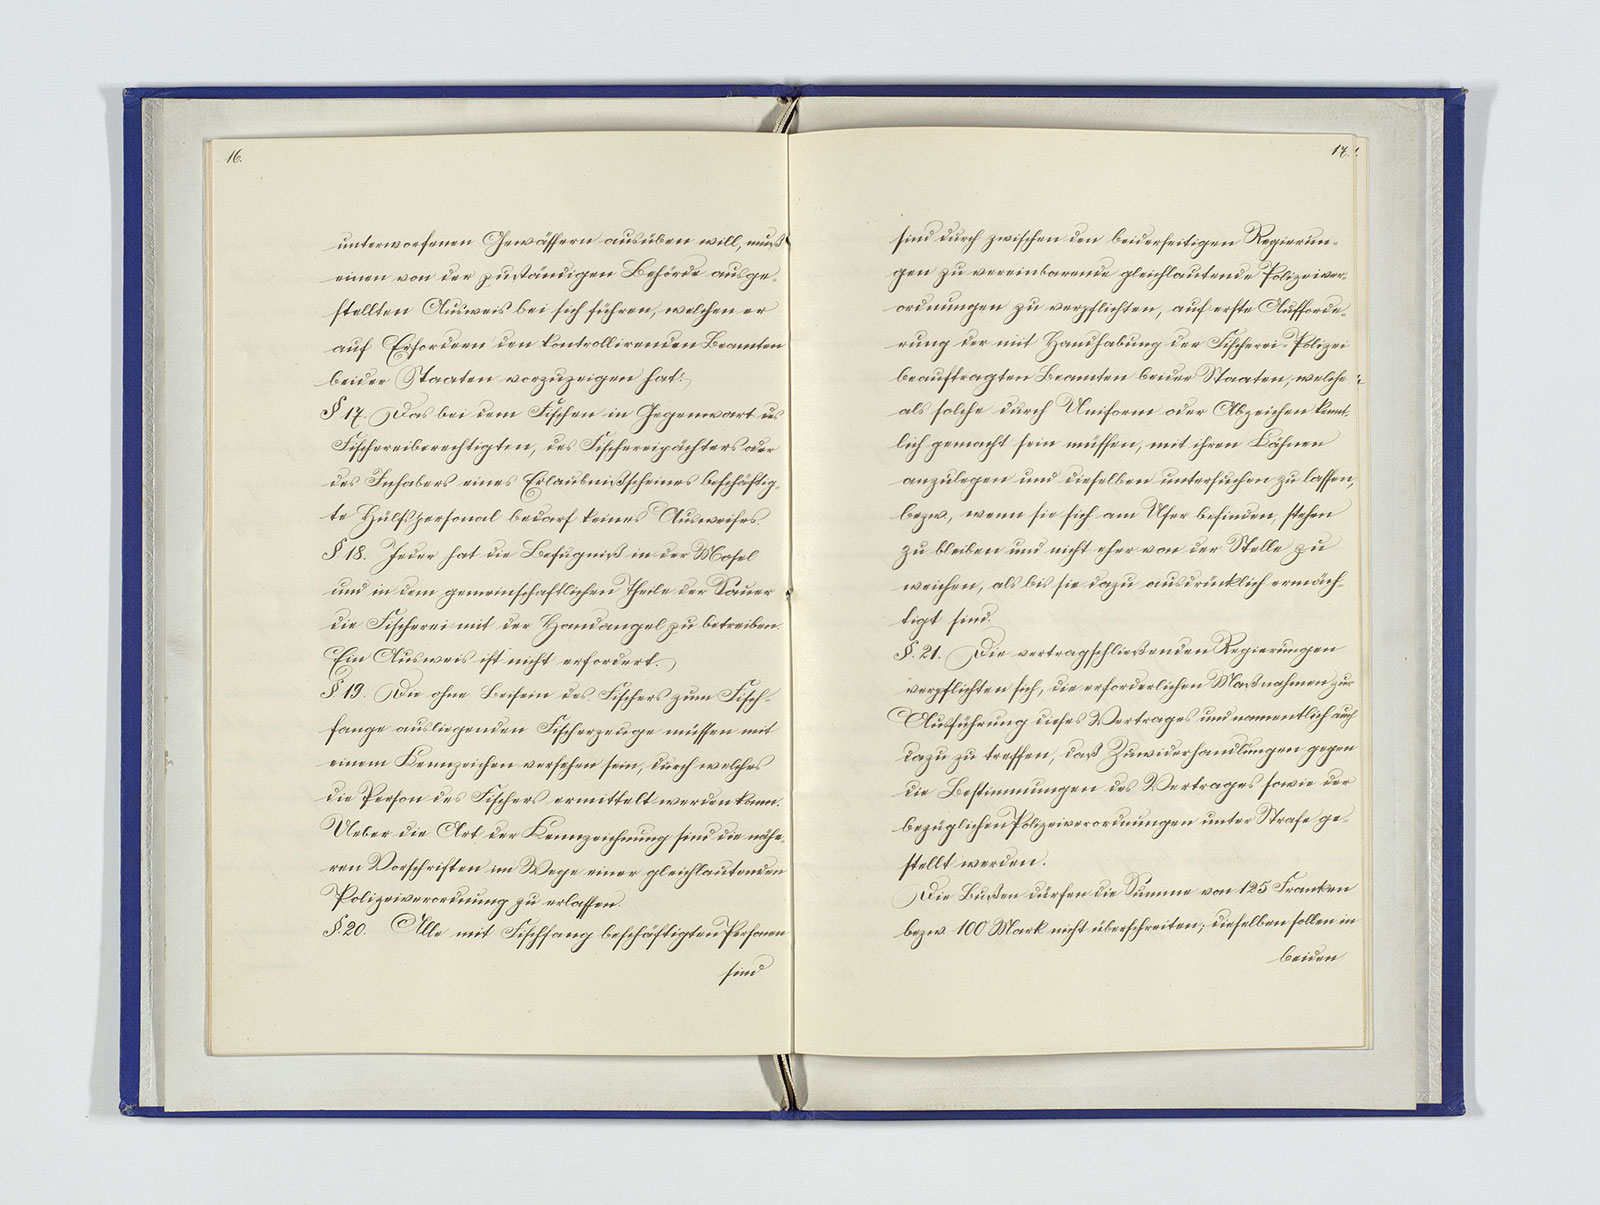 16.
unterworfenen Gewässern ausüben will, muß
einen von der zuständigen Behörde ausge-
stellten Ausweis bei sich führen, welchen er
auf Erfordern den kontrollirenden Beamten
beider Staaten vorzuzeigen hat.
§ 17. Das bei dem Fischen in Gegenwart des
Fischereiberechtigten, des Fischereipächters oder
des Inhabers eines Erlaubnißscheines beschäftig-
te Hülfspersonal bedarf keines Ausweises.
§ 18. Jeder hat die Befugniß in der Mosel
und in dem gemeinschaftlichen Theile der Sauer
die Fischerei mit der Handangel zu betreiben.
Ein Ausweis ist nicht erfordert.
§ 19. Die ohne Beisein des Fischers zum Fisch-
fange ausliegenden Fischerzeuge müssen mit
einem Kennzeichen versehen sein, durch welches
die Person des Fischers ermittelt werden kann.
Ueber die Art der Kennzeichnung sind die nähe-
ren Vorschriften im Wege einer gleichlautenden
Polizeiverordnung zu erlassen.
§. 20. Alle mit Fischfang beschäftigten Personen
sind
17.
sind durch zwischen den beiderseitigen Regierun-
gen zu vereinbarende gleichlautende Polizeiver-
ordnungen zu verpflichten, auf erste Aufforde-
rung der mit Handhabung der Fischerei-Polizei
beauftragten Beamten beider Staaten, welche
als solche durch Uniform oder Abzeichen kennt-
lich gemacht sein müssen, mit ihren Kähnen
anzulegen und dieselben untersuchen zu lassen,
bezw., wenn sie sich am Ufer befinden, stehen
zu bleiben und nicht eher von der Stelle zu
weichen, als bis sie dazu ausdrücklich ermäch-
tigt sind.
§. 21. Die vertragschließenden Regierungen
verpflichten sich, die erforderlichen Maßnahmen zur
Ausführung dieses Vertrages und namentlich auch
dazu zu treffen, daß Zuwiderhandlungen gegen
die Bestimmungen des Vertrages sowie der
bezüglichen Polizeiverordnungen unter Strafe ge-
stellt werden.
Die Bußen dürfen die Summe von 125 Franken
bezw. 100 Mark nicht überschreiten; dieselben sollen in
beiden